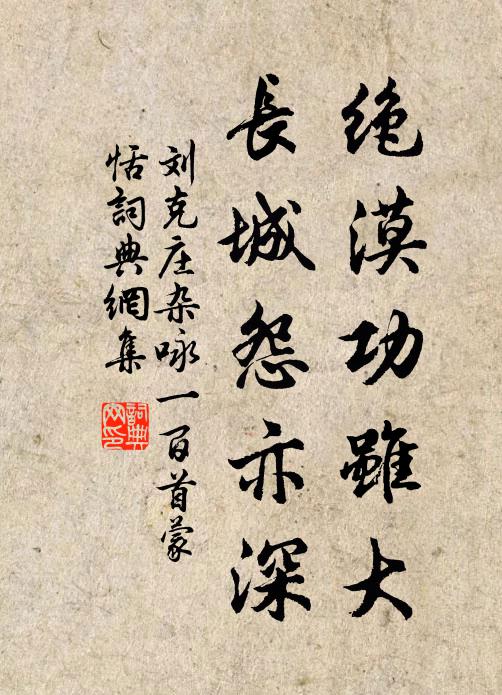 绝漠功雖大
長城怨亦深
刘克庄杂咏一百首蒙
恬詞典網集
詞典网印